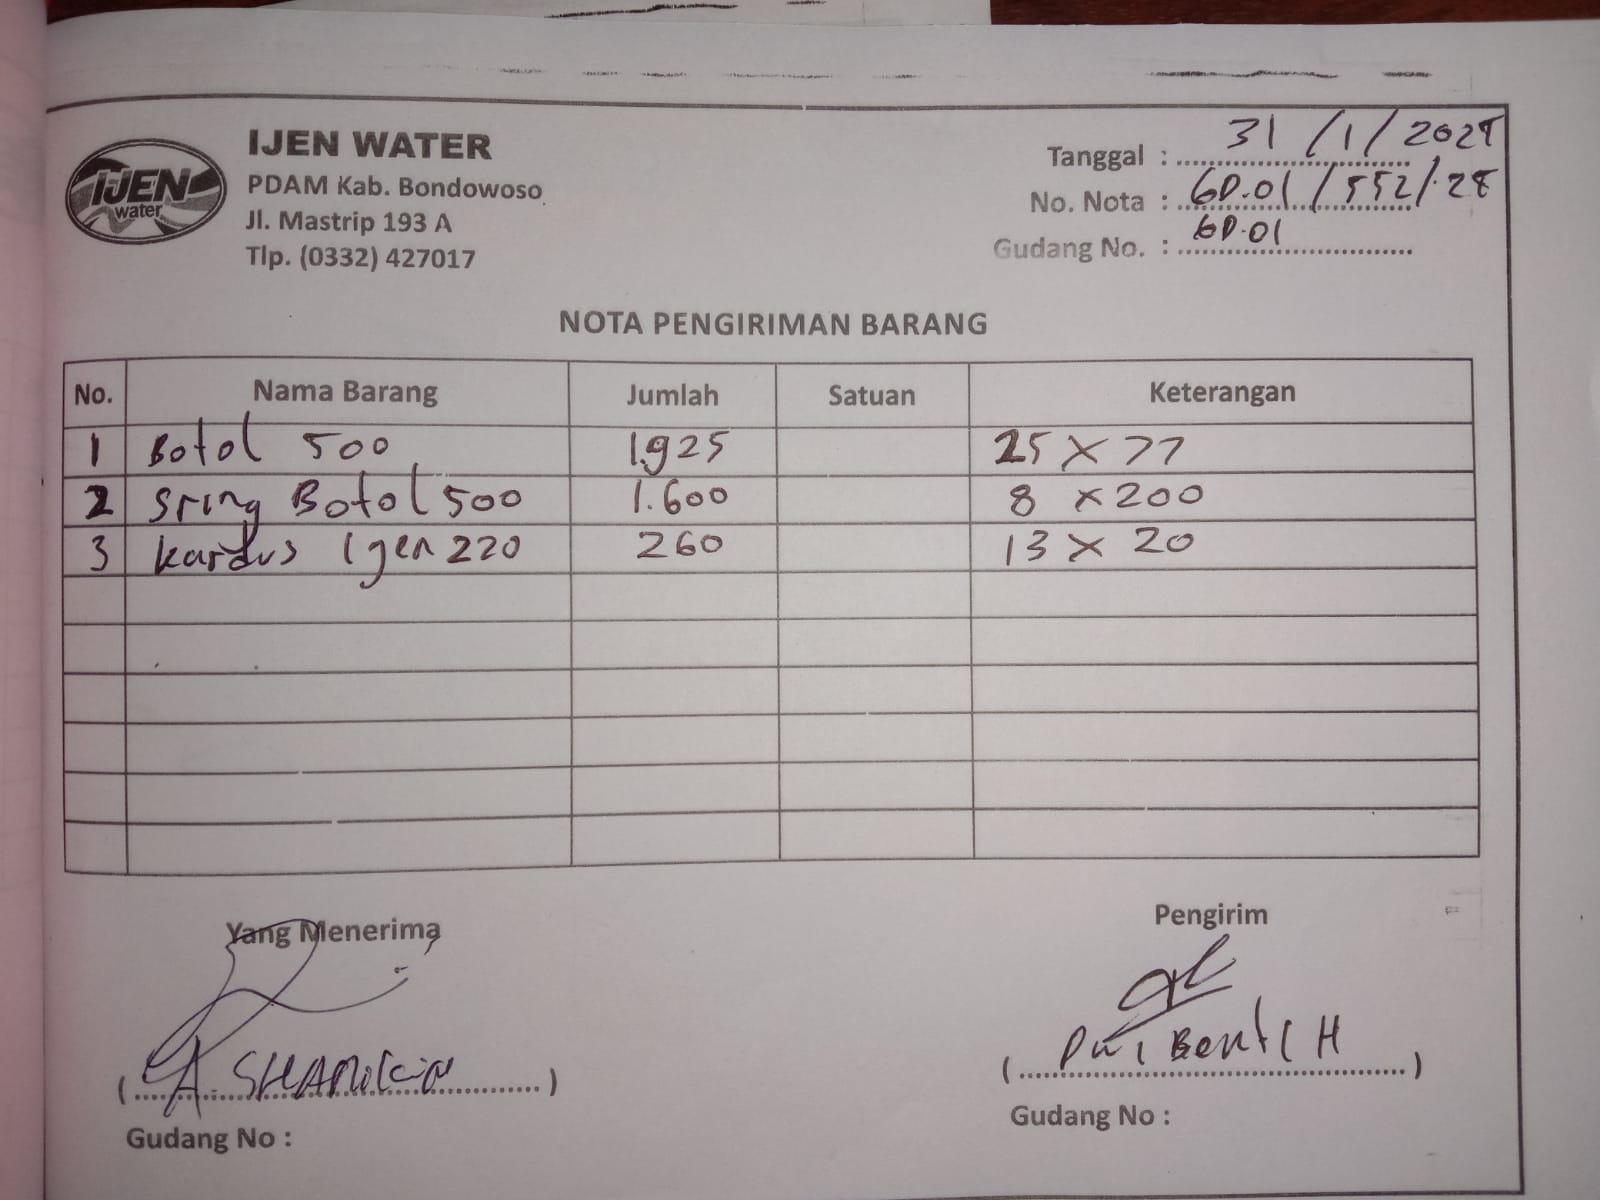 IJEN WATER
PDAM Kab. Bondowoso
Jl. Mastrip 193 A
Tlp. (0332) 427017
IJEN
water
Tanggal : 31 / 1 / 2025
No. Nota : GD.01 / 552 / 25
Gudang No. : GD.01
NOTA PENGIRIMAN BARANG
No. Nama Barang Jumlah Satuan Keterangan
1 Botol 500 1.925 25 x 77
2 Sring Botol 500 1.600 8 x 200
3 Kardus Ijen 220 260 13 x 20
Yang Menerima Pengirim
( A. ) ( Dwi H )
Gudang No : Gudang No :